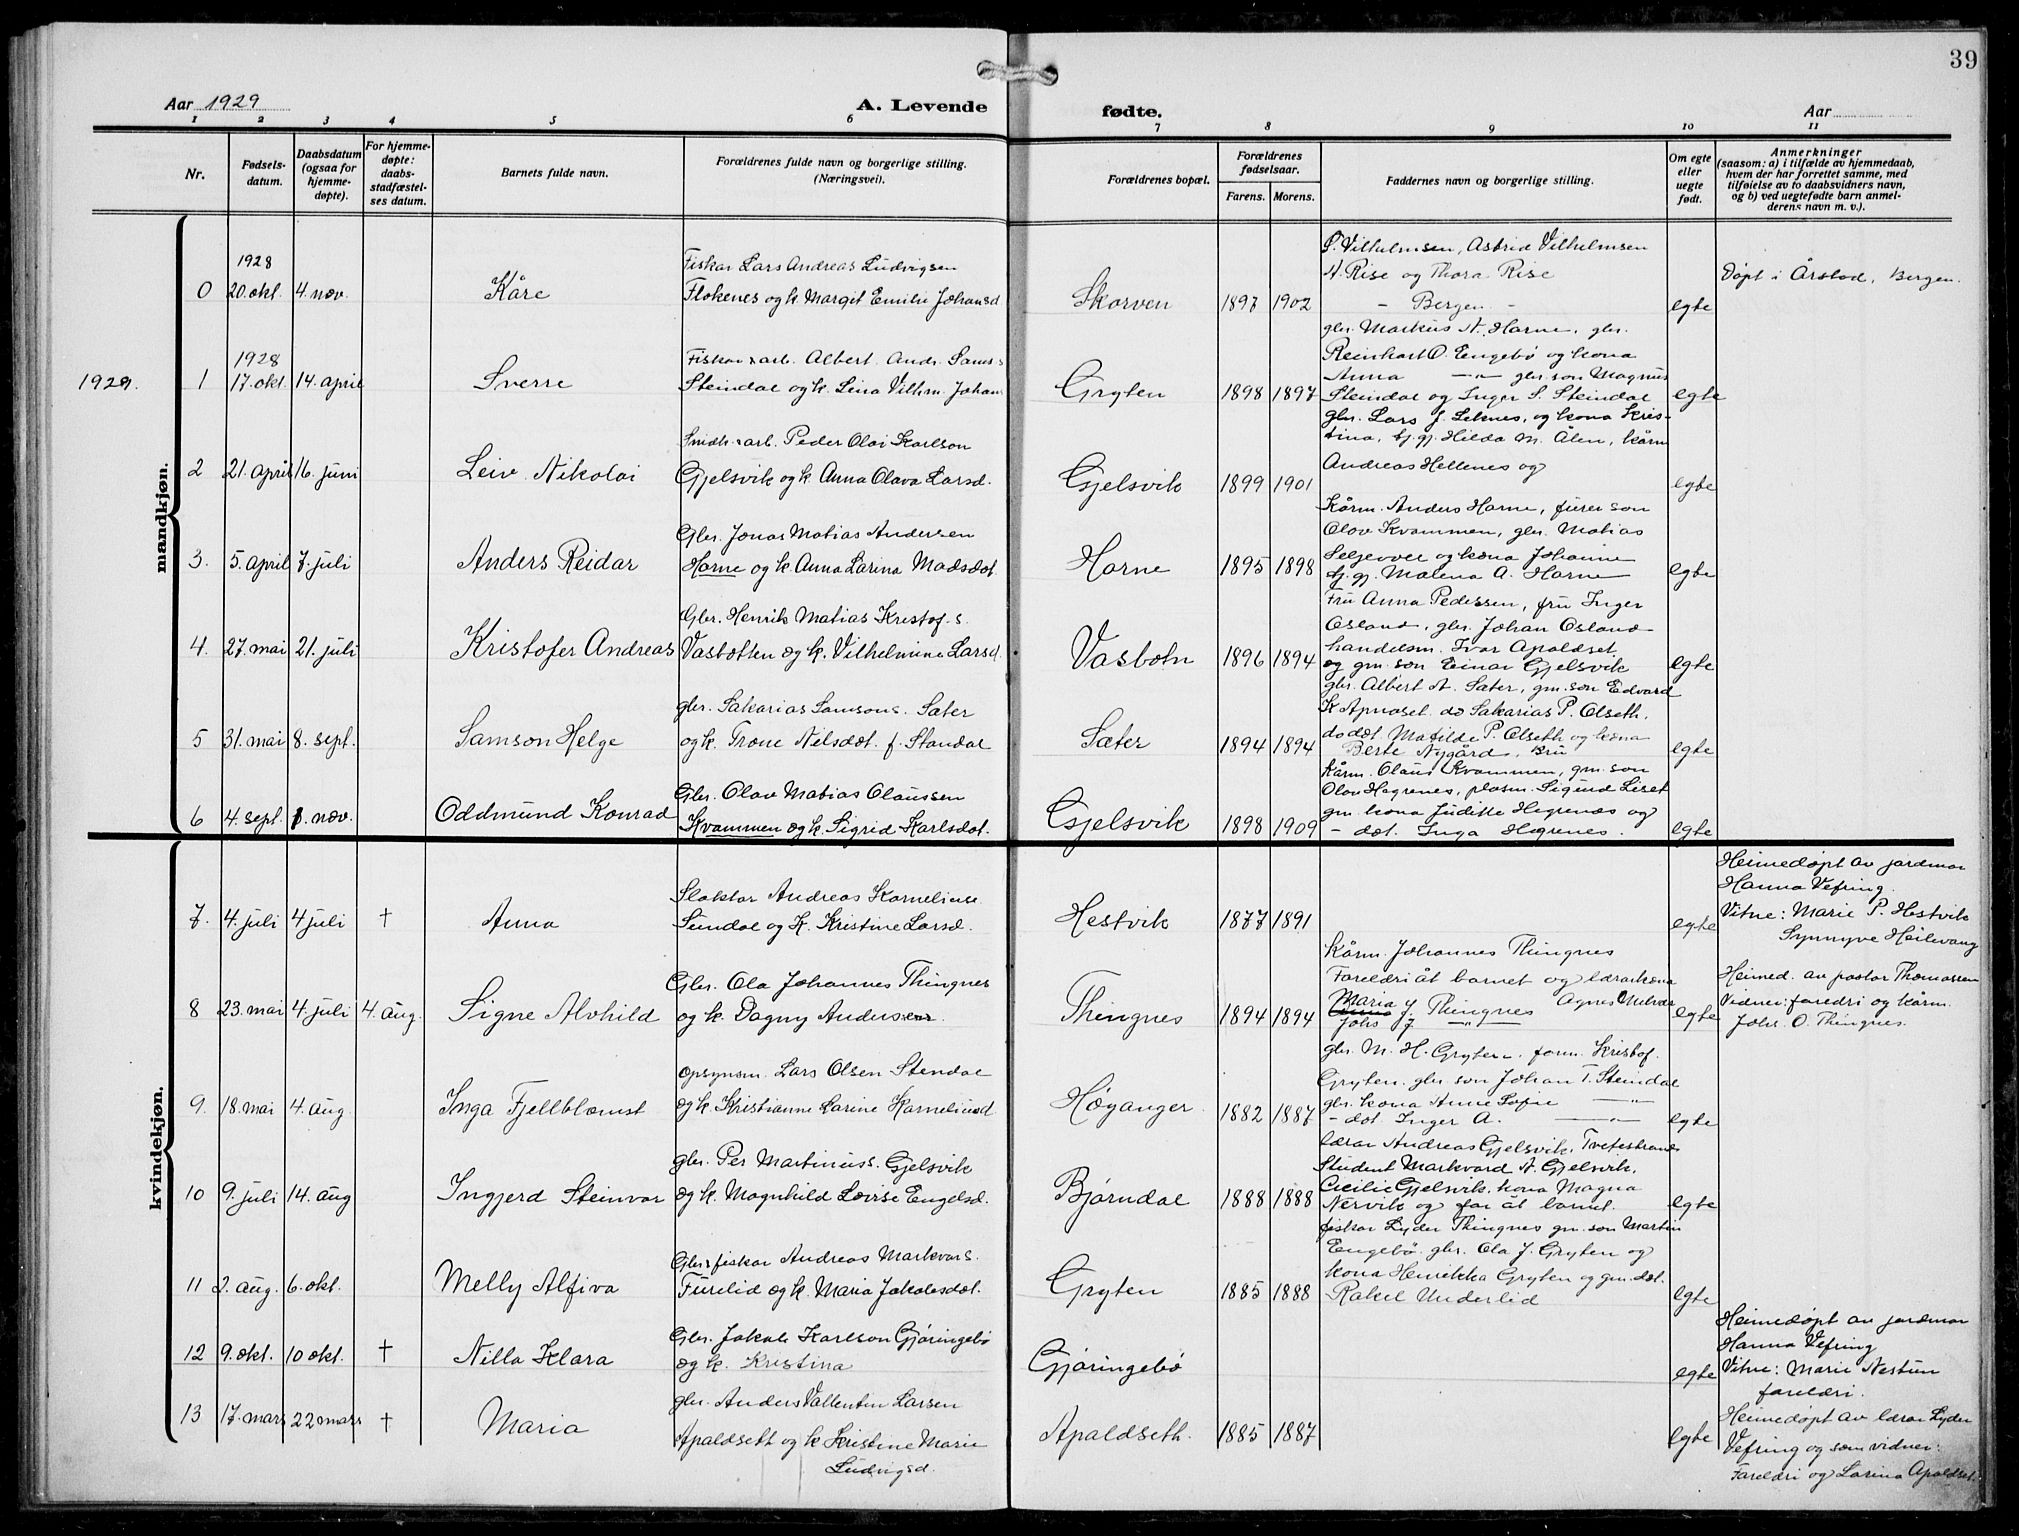 39
Aar 1929
A. Levende
fødte.
Aar
1 2 3 4 5 6 7 8 9 10 11
Nr.
Fødsels-
datum.
Daabsdatum
(ogsaa for
hjemme-
døpte).
For hjemme-
døpte:
daabs-
stadfæstel-
ses datum.
Barnets fulde navn.
Forældrenes fulde navn og borgerlige stilling.
(Næringsvei).
Forældrenes bopæl.
Forældrenes
fødselsaar.
Farens. Morens.
Faddernes navn og borgerlige stilling.
Om egte
eller
uegte
født.
Anmerkninger
(saasom: a) i tilfælde av hjemmedaab,
hvem der har forrettet samme, med
tilføielse av to daabsvidners navn,
og b) ved uegtefødte barn anmel-
derens navn m. v.).
mandkjøn.
1928
0 20. okt. 4. nov. Kåre
Fiskar Lars Andreas Ludvigsen
Flokenes og k. Margit Emilie Johansd
Skorven 1897 1902
P. Vilhelmsen, Astrid Vilhelmsen
A. Rise og Thora Rise
- Bergen -
egte
Døpt i Årstad, Bergen.
1929.
1928
1 17. okt. 14. april Sverre
Fiskar arb. Albert Andr. Sams.s
Steindal og k. Lina Vilhm. Johan
Gryten 1898 1897
gbr. Markus N. Horne, gbr.
Reinhart O. Engebø og kona
Anna -"- gbr son Magnus
Steindal og Inger S. Steindal
egte
2 21. april 16. juni Leiv Nikolai
arb. Peder Olai Karlson
Gjelsvik og k. Anna Olava Larsd.
Gjelsvik 1899 1901
gbr. Lars J. Leknes, og kona Kris-
tina, tj. gj. Hilda M. Ålen, kårm
Andreas Hellenes og
egte
3. 5. april 7. juli Anders Reidar
Gbr. Jonas Matias Andersen
Horne og k. Anna Larina Madsdot.
Horne 1895 1898
Kårm. Anders Horne, fürer son
Olav Kvammen, gbr. Matias
Selgevver og kona Johanne
tj. gj. Malena A. Horne
egte
4. 27. mai 21. juli Kristofer Andreas
Gbr. Henrik Matias Kristof. s.
Vasbotten og k. Vilhelmine Larsd.
Vasbotn 1896 1894
Fru Anna Pedersen, fru Inger
Osland, gbr. Johan Osland
handelsm. Ivar Apaldset
og gm. son Einar Gjelsvik
egte
5 31. mai 8. sept. Samson Helge
gbr. Sakarias Samsons. Sæter
og k. Trone Nilsdot. f. Standal
Sæter 1894 1894
gbr. Albert A. Sæter, gm. son Edvard
K Apnaset do Sakarias P. Olseth.
do dot Matilde P. Olseth og kona
Berte Nygård, Bru
egte
6 4. sept. 1. nov. Oddmund Konrad
Gbr. Olav Matias Olaussen
Kvammen og k. Sigrid Karlsdot.
Gjelsvik 1898 1909
Kårm. Olaus Kvammen, gm. son
Olav Hegrenes, plasm. Sigurd Liset
gm. kona Juditte Hegrenes og
- dot. Inga Hegrenes.
egte
kvindekjøn.
7. 4. juli 4 juli † Anna
Slaktar Andreas Korneliuse.
Sundal og K. Kristine Larsd.
Hestvik 1877 1891
egte
Heimedøpt av jordmor
Hanna Vefring.
Vitne: Marie P. Hestvik
Synnyve Heilevang
8 23. mai 4. juli 4. aug. Signe Alvhild
Gbr. Ola Johannes Thingnes
og k. Dagny Andersen
Thingnes 1894 1894
Kårm. Johannes Thingnes
Foreldri åt barnet og lærarkona
Maria J. Thingnes Agnes
Johs J -"-
egte
Heimed. av pastor Thomassen
Vidner: foreldri og kårm.
Johs. O. Thingnes.
9. 18. mai 4. aug. Inga Fjellblomst
opsynsm. Lars Olsen Stendal
og k. Kristianne Larine Kornelius d
Høyanger 1882 1887
gbr. M. H. Gryten. form. Kristof.
Gryten. gbr son Johan T. Steindal
gbr. kona Anne Sofie -"-
- dot. Inger A. -"-
egte
10 9. juli 14. aug Ingjerd Steinvor
gbr. Per Martinuss. Gjelsvik
og k. Magnhild Lovise Engelsd.
Bjørndal 1888 1888
lærar Andreas Gjelsvik, Tvetestrand
Student Markvard A. Gjelsvik,
Cicilie Gjelsvik, kona Magna
Nervik og far åt barnet.
egte
11 2. aug. 6. okt. Melly Alfiva
Gbr. fiskar Andreas Markvars.
Furelid og k. Maria Jakobsdot.
Gryten 1885 1888
fiskar Lyder Thingnes gm. son Martin
Engebø. gbr. Ola J. Gryten og
kona Henrikka Gryten og gm. dot.
Rakel Underlid
egte
12 9. okt. 10 okt. † Nilla Klara
Gbr. Jakob Karlson Gjøringebø
og k. Kristina
Gjøringebø
egte
Heimedøpt av jordmor
Hanna Vefring
Vitne: Marie Nestun
foreldri.
13 17. mars 22 mars † Maria
gbr. Anders Vallentin Larsen
Apaldseth og k Kristine Marie
Ludvigsd.
Apaldseth. 1885 1887
egte
Heimedøpt av lærar Lyder
Vefring og som vidner:
Foreldri og Larina Apaldset.